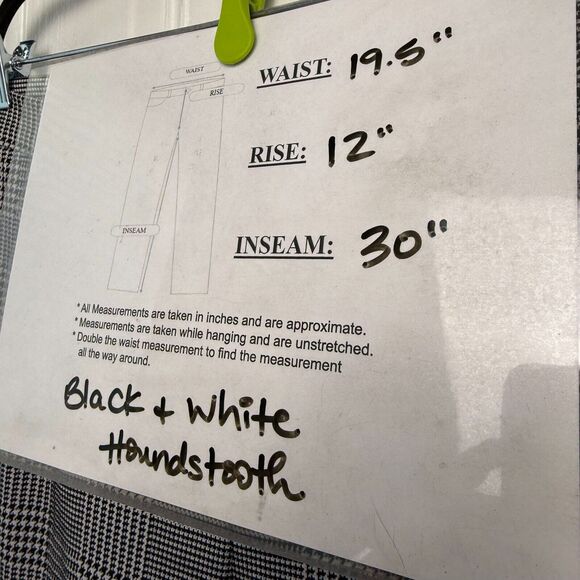 WAIST
RISE
INSEAM
WAIST: 19.5"
RISE: 12"
INSEAM: 30"
* All Measurements are taken in inches and are approximate.
* Measurements are taken while hanging and are unstretched.
* Double the waist measurement to find the measurement
all the way around.
Black + White
Houndstooth